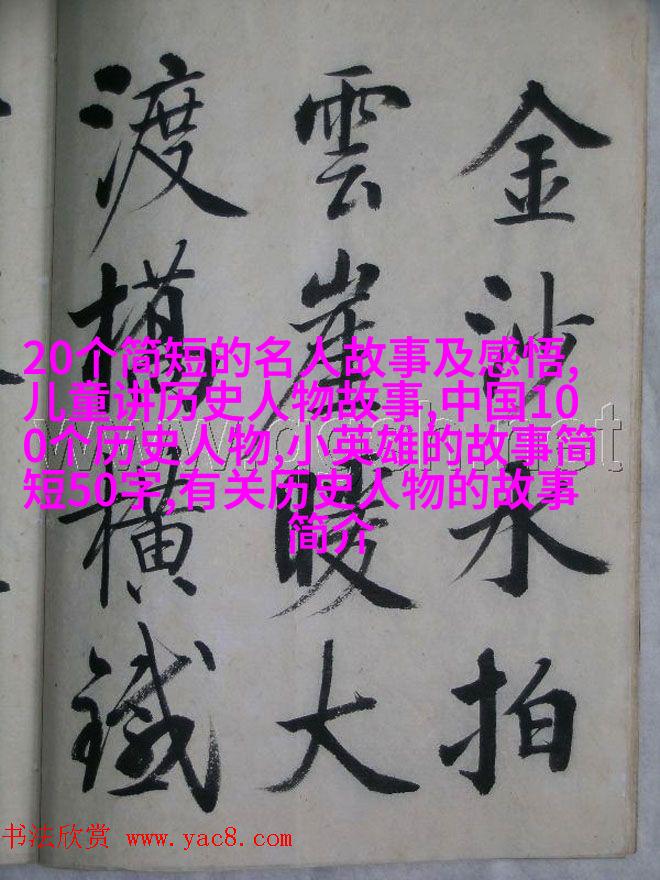 金沙水拍
雲崖暖大
渡橋橫鐵
20个简短的名人故事及感悟,
儿童讲历史人物故事,中国10
0个历史人物,小英雄的故事简
短50字,有关历史人物的故事
简介
书法欣赏 www.yac8.com